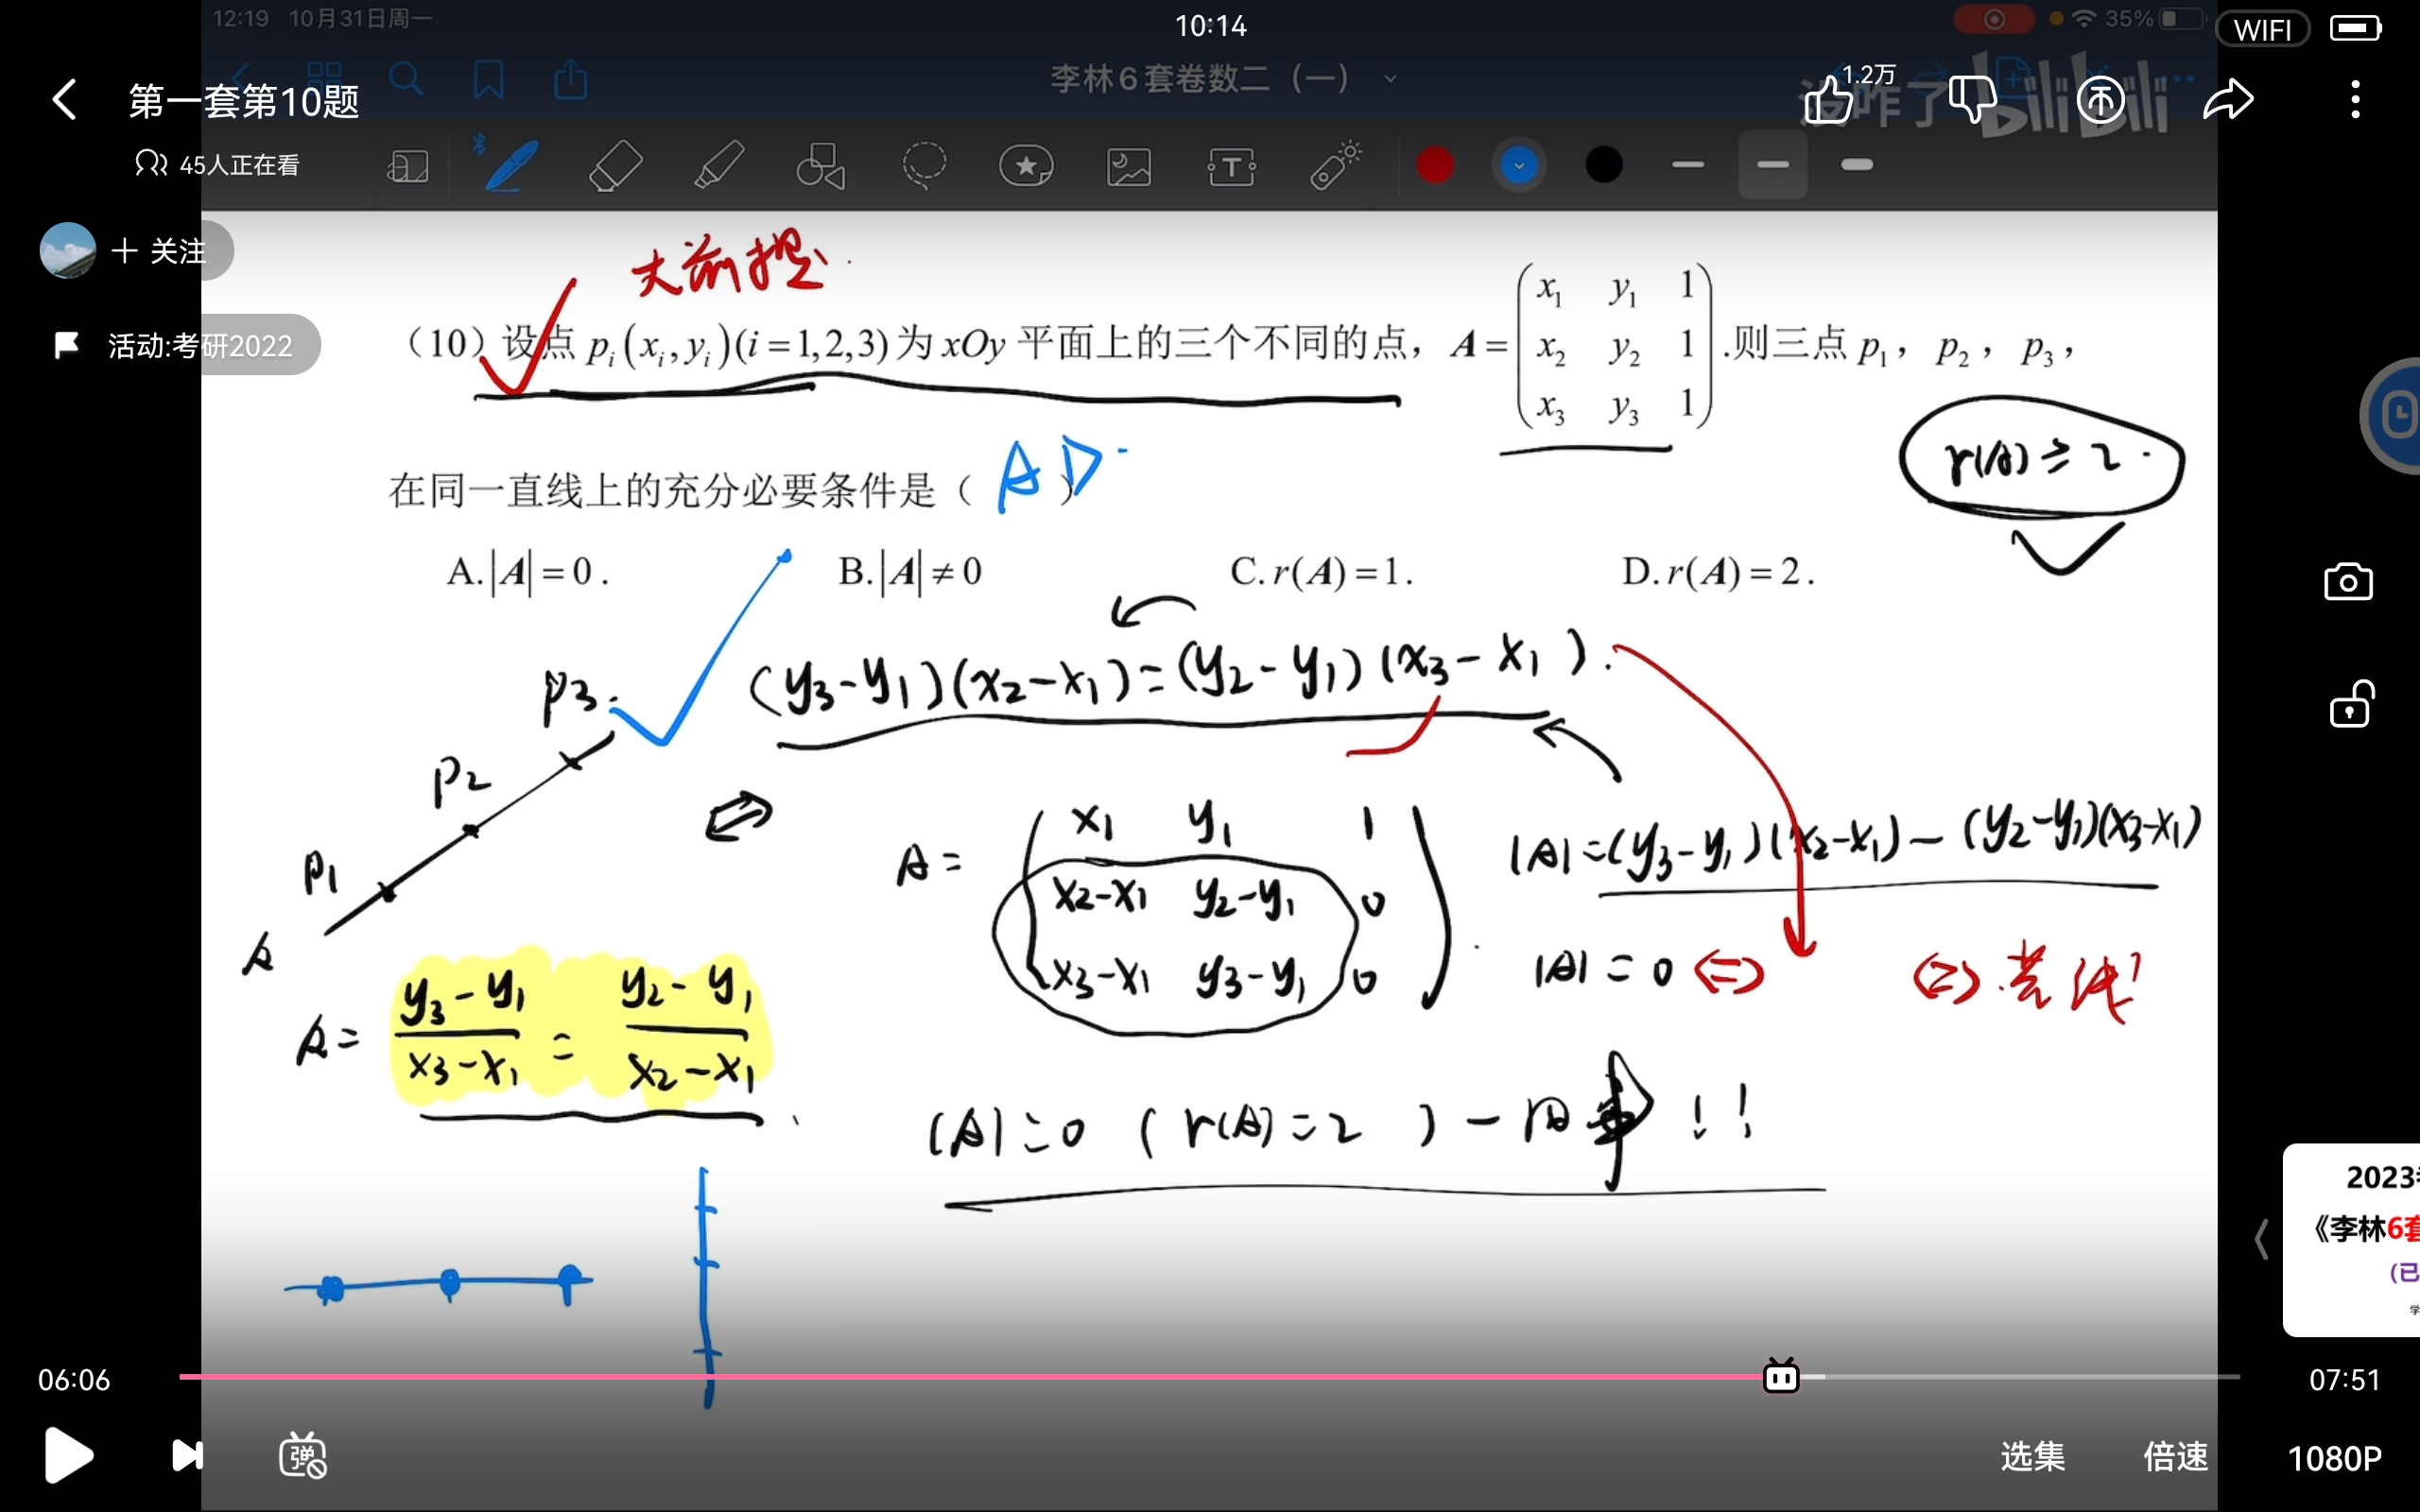 12:19 10月31日周一
10:14
35%
WIFI
李林6套卷数二（一）
第一套第10题
1.2万
没咋了
bilibili
45人正在看
T
+ 关注
活动:考研2022
大前提
（10）设点 p_i(x_i, y_i)(i=1,2,3)为 xOy 平面上的三个不同的点，A= (x₁ y₁ 1; x₂ y₂ 1; x₃ y₃ 1) .则三点 p₁， p₂， p₃，
r(A) ≥ 2
在同一直线上的充分必要条件是（ AD ）
A.|A|=0. B.|A|≠0 C. r(A)=1. D. r(A)=2.
(y₃-y₁)(x₂-x₁)=(y₂-y₁)(x₃-x₁).
p₃
p₂
p₁
A= (x₁ y₁ 1; x₂-x₁ y₂-y₁ 0; x₃-x₁ y₃-y₁ 0).
|A|=(y₃-y₁)(x₂-x₁)-(y₂-y₁)(x₃-x₁)
|A|=0 ⇔ ⇔ 共线
k
k= (y₃-y₁)/(x₃-x₁) = (y₂-y₁)/(x₂-x₁)
|A|=0 ( r(A)=2 ) 一回事！！
2023
《李林6套
（已
学
06:06
07:51
弹
选集
倍速
1080P